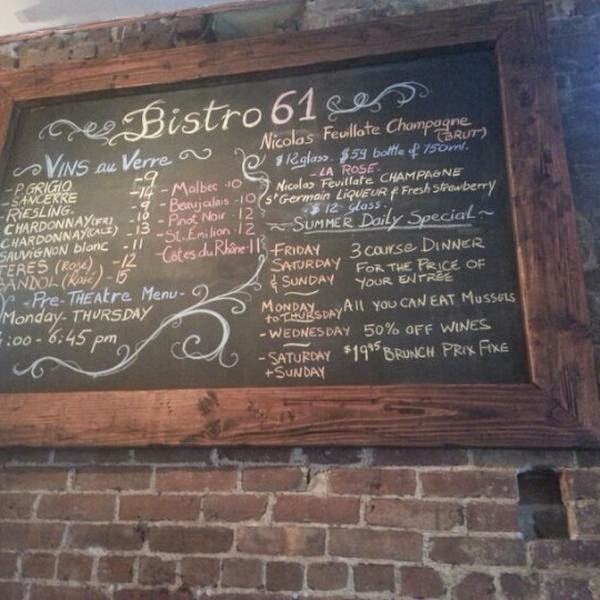 Bistro 61
VINS au Verre
- P. GRIGIO -9
SANCERRE -14
RIESLING - 9
CHARDONNAY (FR) - 10
CHARDONNAY (CALI) - 13
SAUVIGNON blanc - 11
(Rosé) - 12
BANDOL (Rosé) - 15
- Malbec - 10
- Beaujolais - 10
- Pinot Noir - 12
- St. Emilion - 12
- Côtes du Rhône 11
- Pre-THEAtre Menu -
Monday - THURSDAY
:00 - 6:45 pm
Nicolas Feuillate Champagne
(BRUT)
$12 glass. $59 bottle of 750ml.
- LA ROSE.
Nicolas Feuillate CHAMPAGNE
St Germain LIQUEUR & Fresh Strawberry
- $12 glass -
~ SUMMER Daily Special ~
- FRIDAY SATURDAY & SUNDAY
3 course DINNER
FOR THE PRICE OF
YOUR ENTRÉE
MONDAY to THURSDAY All YOU CAN EAT MUSSELS
- WEDNESDAY 50% OFF WINES
- SATURDAY + SUNDAY $19.95 BRUNCH PRIX FIXE